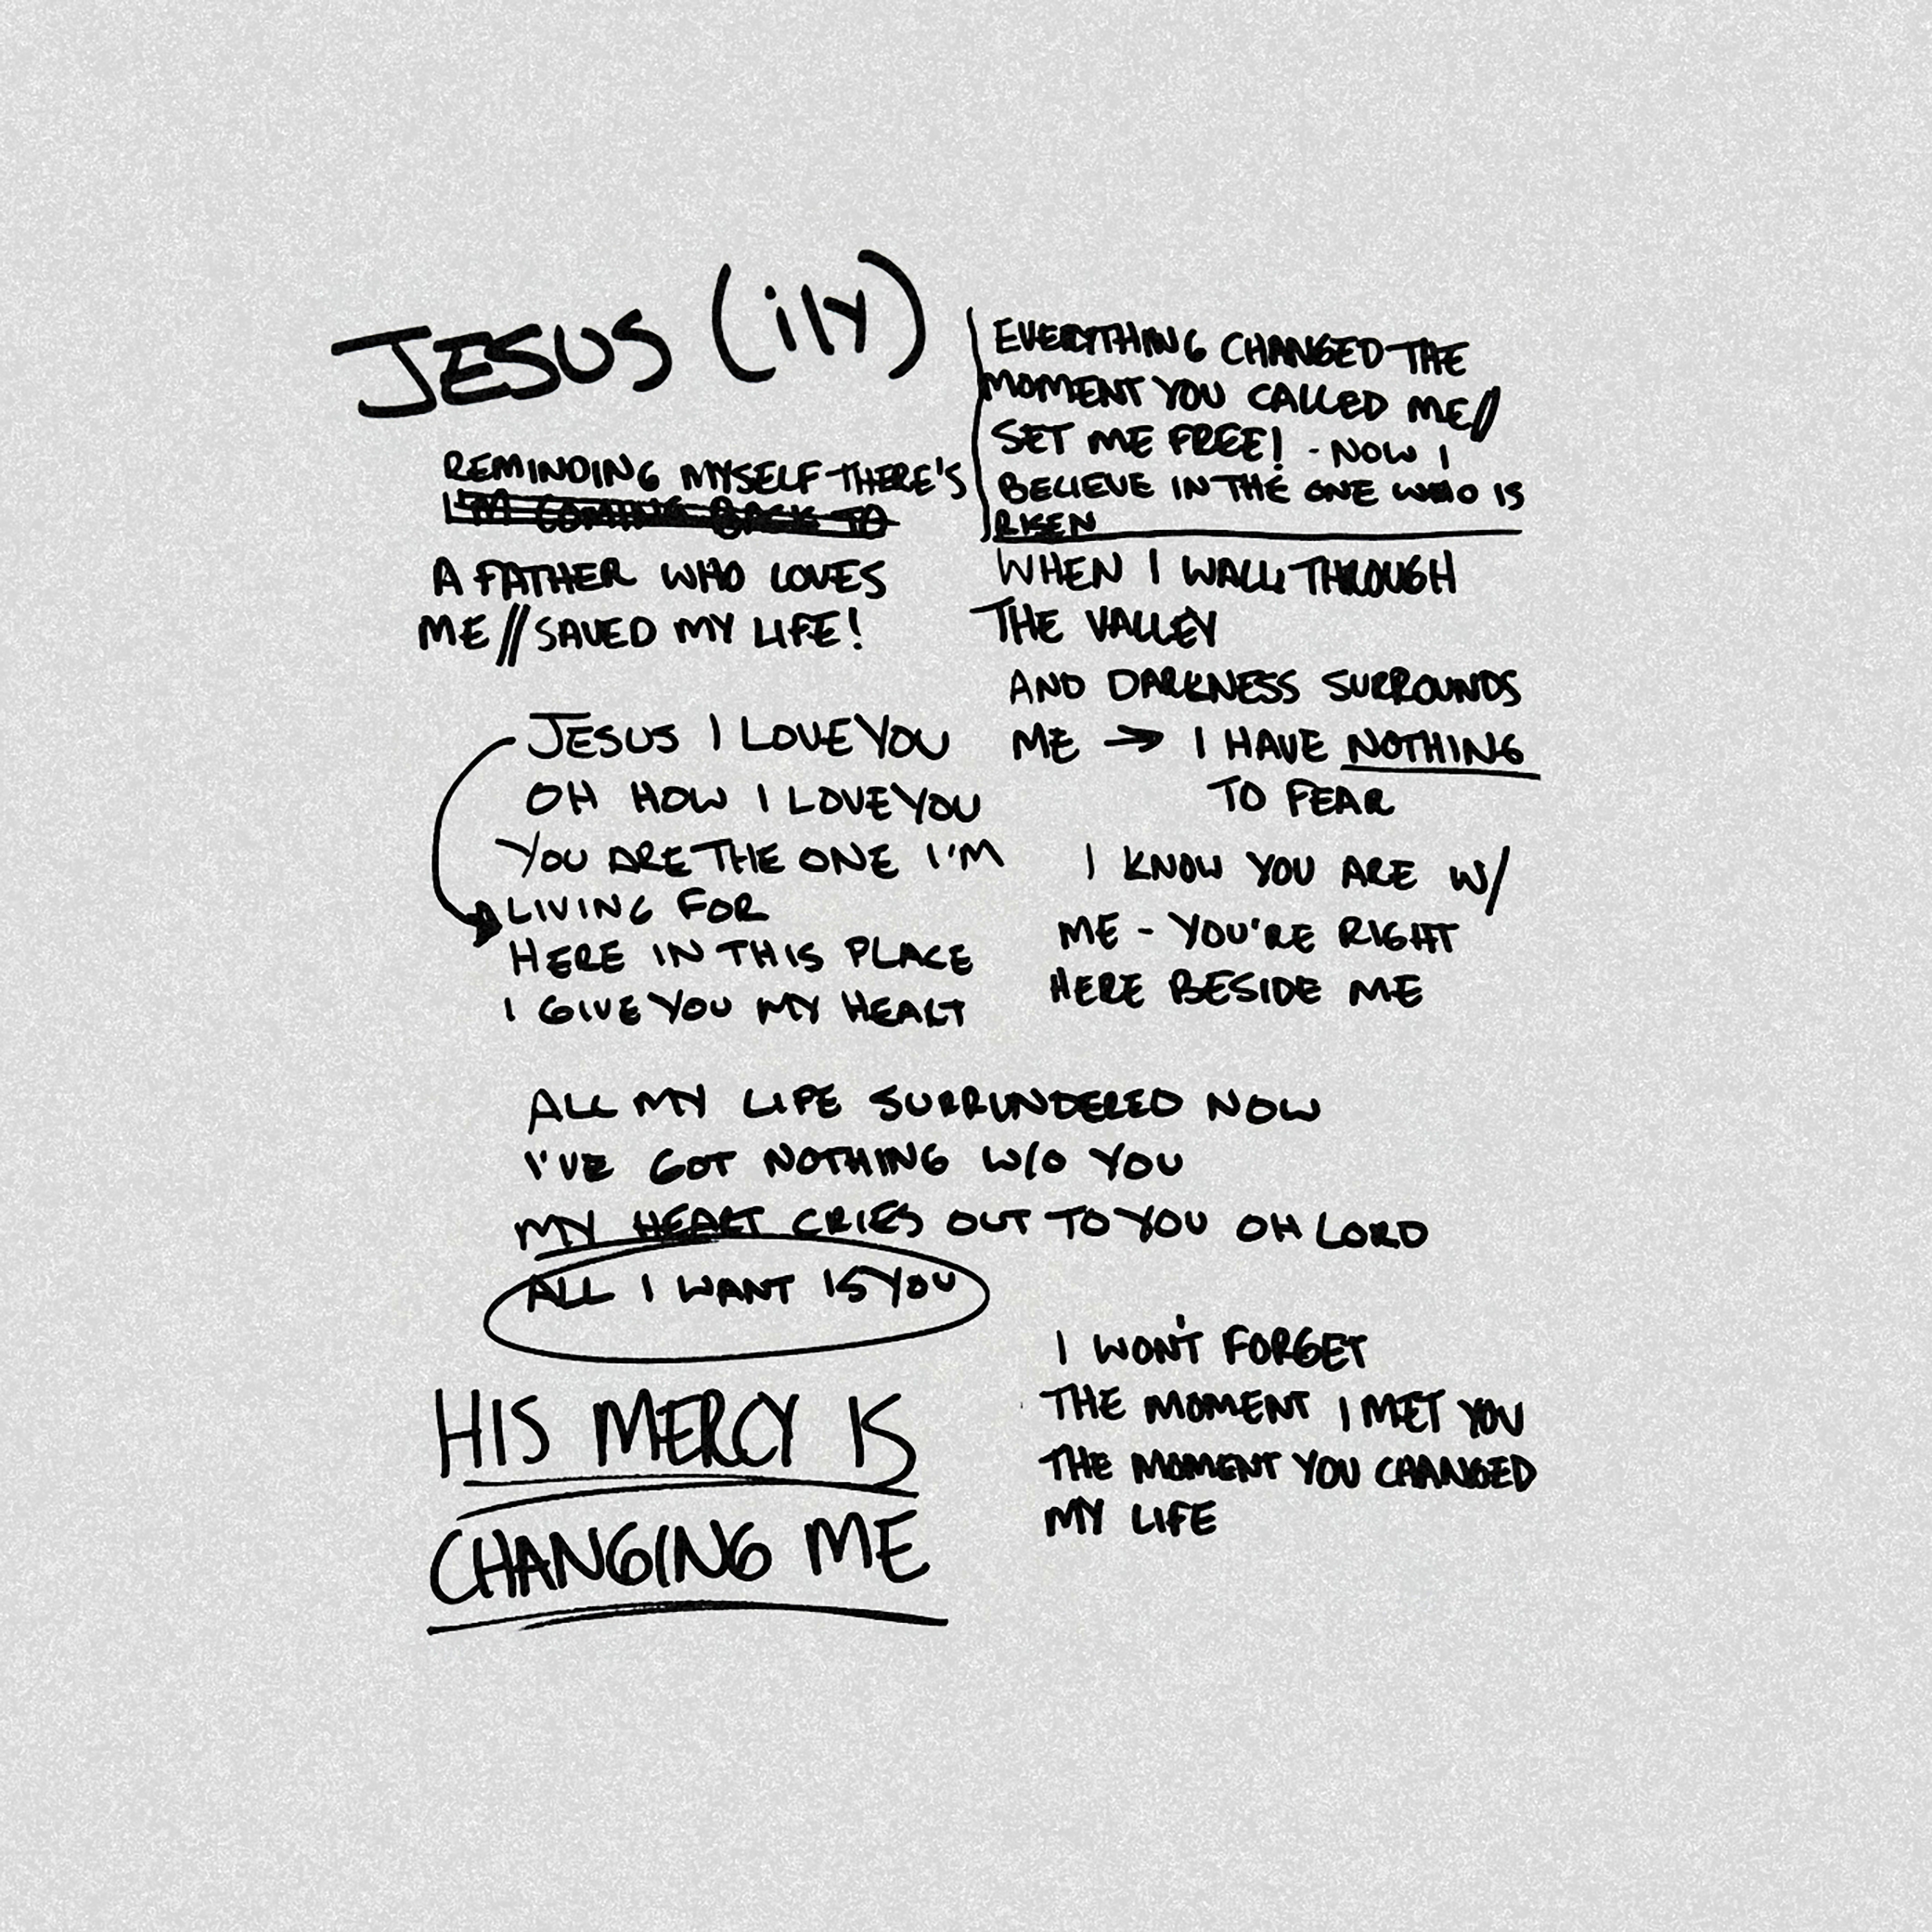 JESUS (ily)
REMINDING MYSELF THERE'S
I'M COMING BACK TO
A FATHER WHO LOVES
ME // SAVED MY LIFE!
JESUS I LOVE YOU
OH HOW I LOVE YOU
YOU ARE THE ONE I'M
LIVING FOR
HERE IN THIS PLACE
I GIVE YOU MY HEART
EVERYTHING CHANGED THE
MOMENT YOU CALLED ME //
SET ME FREE! - NOW I
BELIEVE IN THE ONE WHO IS
RISEN
WHEN I WALK THROUGH
THE VALLEY
AND DARKNESS SURROUNDS
ME → I HAVE NOTHING
TO FEAR
I KNOW YOU ARE W/
ME - YOU'RE RIGHT
HERE BESIDE ME
ALL MY LIFE SURRUNDERED NOW
I'VE GOT NOTHING W/O YOU
MY HEART CRIES OUT TO YOU OH LORD
ALL I WANT IS YOU
HIS MERCY IS
CHANGING ME
I WON'T FORGET
THE MOMENT I MET YOU
THE MOMENT YOU CHANGED
MY LIFE